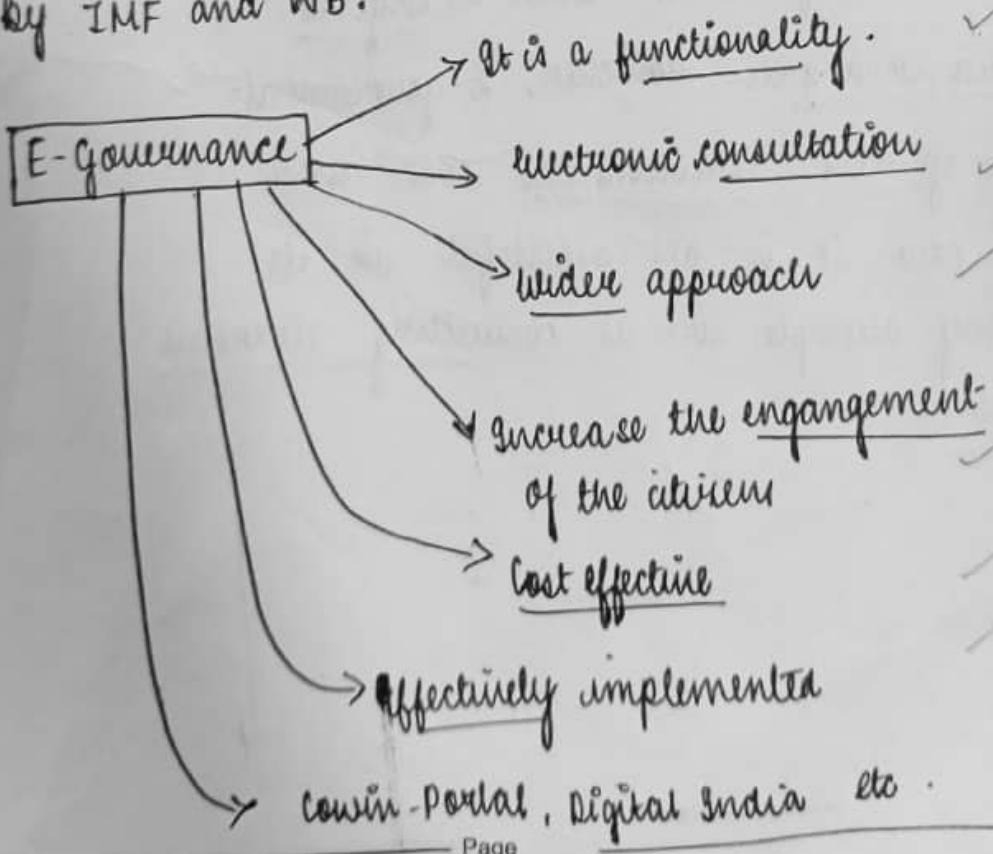 by IMF and WB.
It is a functionality.
E-Governance
electronic consultation
wider approach
Increase the engangement
of the citizens
Cost effective
effectively implemented
Cowin-Portal, Digital India etc.
Page